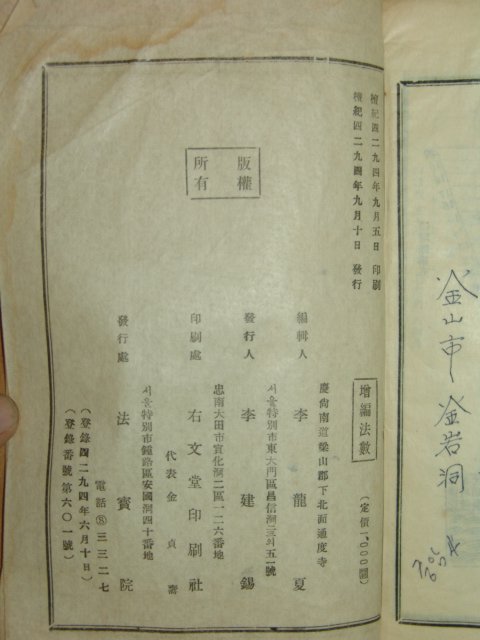 檀紀四二九四年九月五日 印刷
檀紀四二九四年九月十日 發行
版權
所有
增編法數
(定價一、○○○圜)
慶尙南道梁山郡下北面通度寺
編輯人 李龍夏
서울特別市東大門區昌信洞三의五一號
發行人 李建錫
忠南大田市宣化洞二區一二六地
印刷處 右文堂印刷社
代表 金貞
서울特別市鐘路區安國洞四十番地
發行處 法寶院
電話⑧三三二七
(登錄四二九四年六月十日)
(登錄番號第六○一號)
金山市 金岩洞